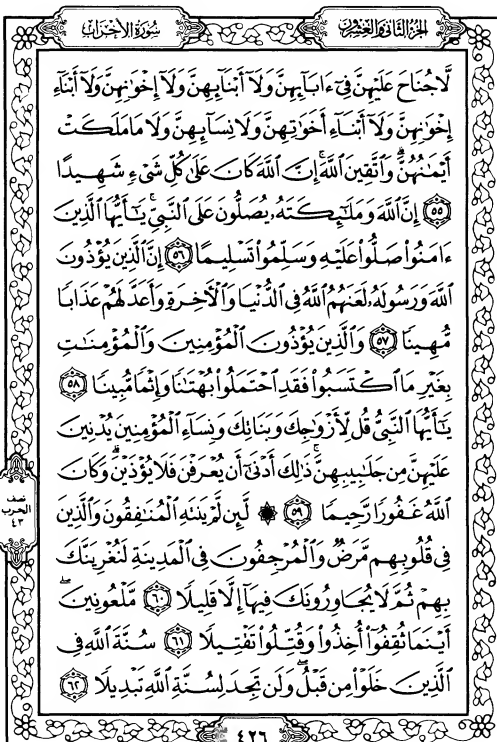 الجزء الثاني والعشرون
سورة الأحزاب
لَّا جُنَاحَ عَلَيْهِنَّ فِيٓ ءَابَآئِهِنَّ وَلَآ أَبْنَآئِهِنَّ وَلَآ إِخْوَٰنِهِنَّ وَلَآ أَبْنَآءِ
إِخْوَٰنِهِنَّ وَلَآ أَبْنَآءِ أَخَوَٰتِهِنَّ وَلَا نِسَآئِهِنَّ وَلَا مَا مَلَكَتْ
أَيْمَٰنُهُنَّۗ وَٱتَّقِينَ ٱللَّهَۚ إِنَّ ٱللَّهَ كَانَ عَلَىٰ كُلِّ شَيْءٍ شَهِيدًا
٥٥ إِنَّ ٱللَّهَ وَمَلَٰٓئِكَتَهُۥ يُصَلُّونَ عَلَى ٱلنَّبِيِّۚ يَٰٓأَيُّهَا ٱلَّذِينَ
ءَامَنُوا۟ صَلُّوا۟ عَلَيْهِ وَسَلِّمُوا۟ تَسْلِيمًا ٥٦ إِنَّ ٱلَّذِينَ يُؤْذُونَ
ٱللَّهَ وَرَسُولَهُۥ لَعَنَهُمُ ٱللَّهُ فِي ٱلدُّنْيَا وَٱلْأَخِرَةِ وَأَعَدَّ لَهُمْ عَذَابًا
مُّهِينًا ٥٧ وَٱلَّذِينَ يُؤْذُونَ ٱلْمُؤْمِنِينَ وَٱلْمُؤْمِنَٰتِ
بِغَيْرِ مَا ٱكْتَسَبُوا۟ فَقَدِ ٱحْتَمَلُوا۟ بُهْتَٰنًا وَإِثْمًا مُّبِينًا ٥٨
يَٰٓأَيُّهَا ٱلنَّبِيُّ قُل لِّأَزْوَٰجِكَ وَبَنَاتِكَ وَنِسَآءِ ٱلْمُؤْمِنِينَ يُدْنِينَ
عَلَيْهِنَّ مِن جَلَٰبِيبِهِنَّۚ ذَٰلِكَ أَدْنَىٰٓ أَن يُعْرَفْنَ فَلَا يُؤْذَيْنَۗ وَكَانَ
ٱللَّهُ غَفُورًا رَّحِيمًا ٥٩ ۞ لَّئِن لَّمْ يَنتَهِ ٱلْمُنَٰفِقُونَ وَٱلَّذِينَ
فِي قُلُوبِهِم مَّرَضٌ وَٱلْمُرْجِفُونَ فِي ٱلْمَدِينَةِ لَنُغْرِيَنَّكَ
بِهِمْ ثُمَّ لَا يُجَاوِرُونَكَ فِيهَآ إِلَّا قَلِيلًا ٦٠ مَّلْعُونِينَۖ
أَيْنَمَا ثُقِفُوٓا۟ أُخِذُوا۟ وَقُتِّلُوا۟ تَقْتِيلًا ٦١ سُنَّةَ ٱللَّهِ فِي
ٱلَّذِينَ خَلَوْا۟ مِن قَبْلُۖ وَلَن تَجِدَ لِسُنَّةِ ٱللَّهِ تَبْدِيلًا ٦٢
نصف
الحزب
٤٣
٤٢٦